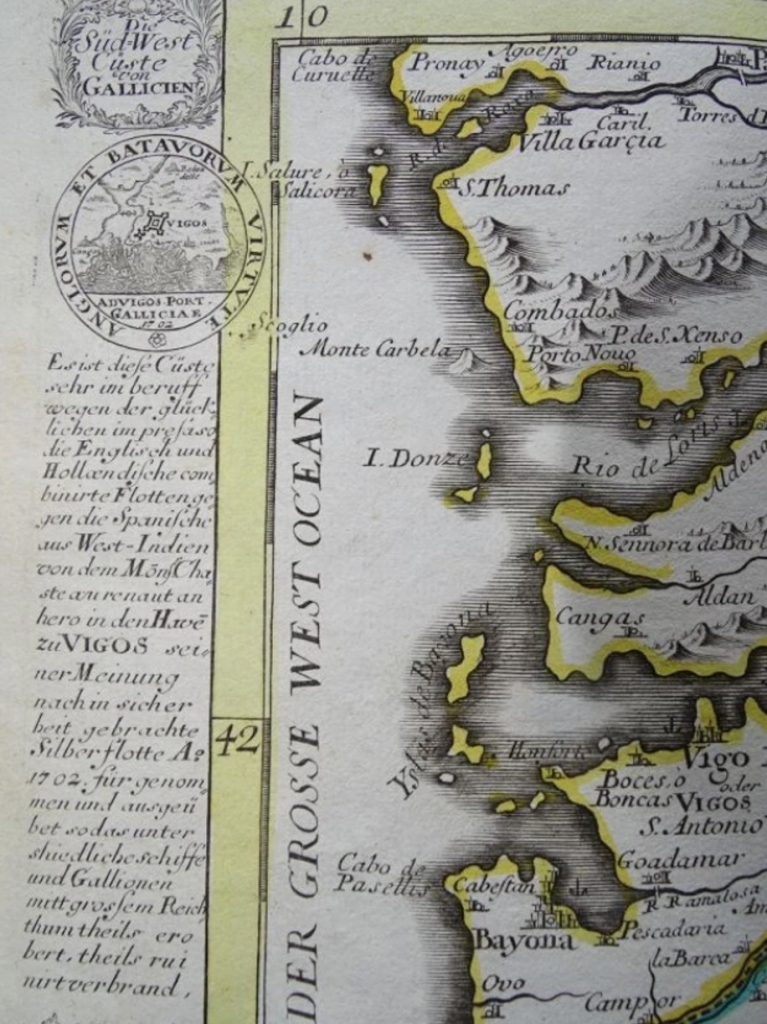 Die
Süd-West
Cüste
von
GALLICIEN
ANGLORVM ET BATAVORVM VIRTVTE
VIGOS
ADVIGOS PORT.
GALLICIAE
1702
Es ist diese Cüste
sehr im beruff
wegen der glück
lichen impresa so
die Englisch und
Hollændische com
binirte Flotten ge
gen die Spanische
aus West-Indien
von dem Mons. Cha
steau renaut an
hero in den Havē
zu VIGOS sei-
ner Meinung
nach in sicher
heit gebrachte
Silberflotte Aº
1702. fürgenom
men und ausgeü
bet so das unter
shiedliche schiffe
und Gallionen
mitt grossem Reich
thum theils ero
bert, theils rui
nirt verbrand,
10
42
DER GROSSE WEST OCEAN
Cabo de
Curuette
Pronay
Agoero
Rianio
Villanoua
R. de Roxo
Caril.
Torres d
Villa Garçia
I. Salure, ò
Salicora
S. Thomas
Scoglio
Combados
Monte Carbela
Porto Nouo
P. de S. Xenso
I. Donze
Rio de Loris
Aldeno
N. Sennora de Barl
Aldan
Cangas
Yslas de Bayona
Monforte
Vigo
oder
VIGOS
Boces, o
Boncas
S. Antonio
Goadamar
Cabo de
Pasellis
Cabestan
R. Ramalosa
Pescadaria
Bayona
la Barca
Ovo
Camp or